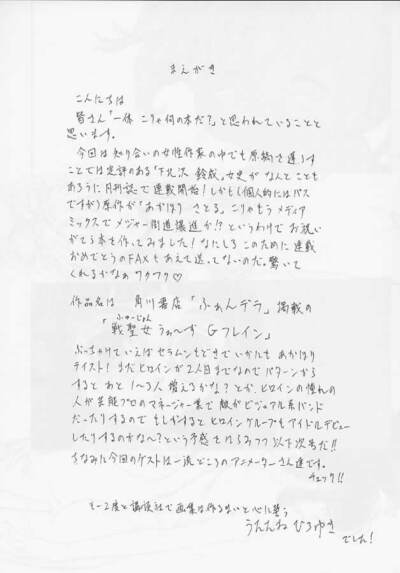 まえがき
こんにちは
皆さん「一体 こりゃ何の本だ?」と思われていることと
思います。
今回は知り合いの女性作家の中でも原稿を遅らす
ことでは定評のある「下北沢 鈴成」女史が なんと ことも
あろうに月刊誌で連載開始!しかも(個人的にはパス
ですが)原作が「あかほり さとる」こりゃもう メディア
ミックスでメジャー街道驀進か!?というわけで お祝い
がてら本を作ってみました!なにしろ このために連載
おめでとうのFAXもあえて送ってないのだ。驚いて
くれるかなぁ ワクワク♡
作品名は 角川書店「ふぁんデラ」掲載の
「戦聖女 うぁ〜ず Gフレイン」
ぶっちゃけていえばセラムンもどきでいかにも あかほり
テイスト!まだヒロインが2人目までなのでパターンから
すると あと1〜3人増えるかな?とか ヒロインの憧れの
人が芸能プロのマネージャー業で 敵がビジュアル系バンド
だったりするので もしかすると ヒロイングループもアイドルデビュー
したりするのかな〜?という予感をはらみつつ 以下次号だ!!
ちなみに今回のゲストは一流どころのアニメーターさん達です。
チェック!!
もー2度と講談社で画集は作るまいと心に誓う
うたたね ひろゆき
でした!